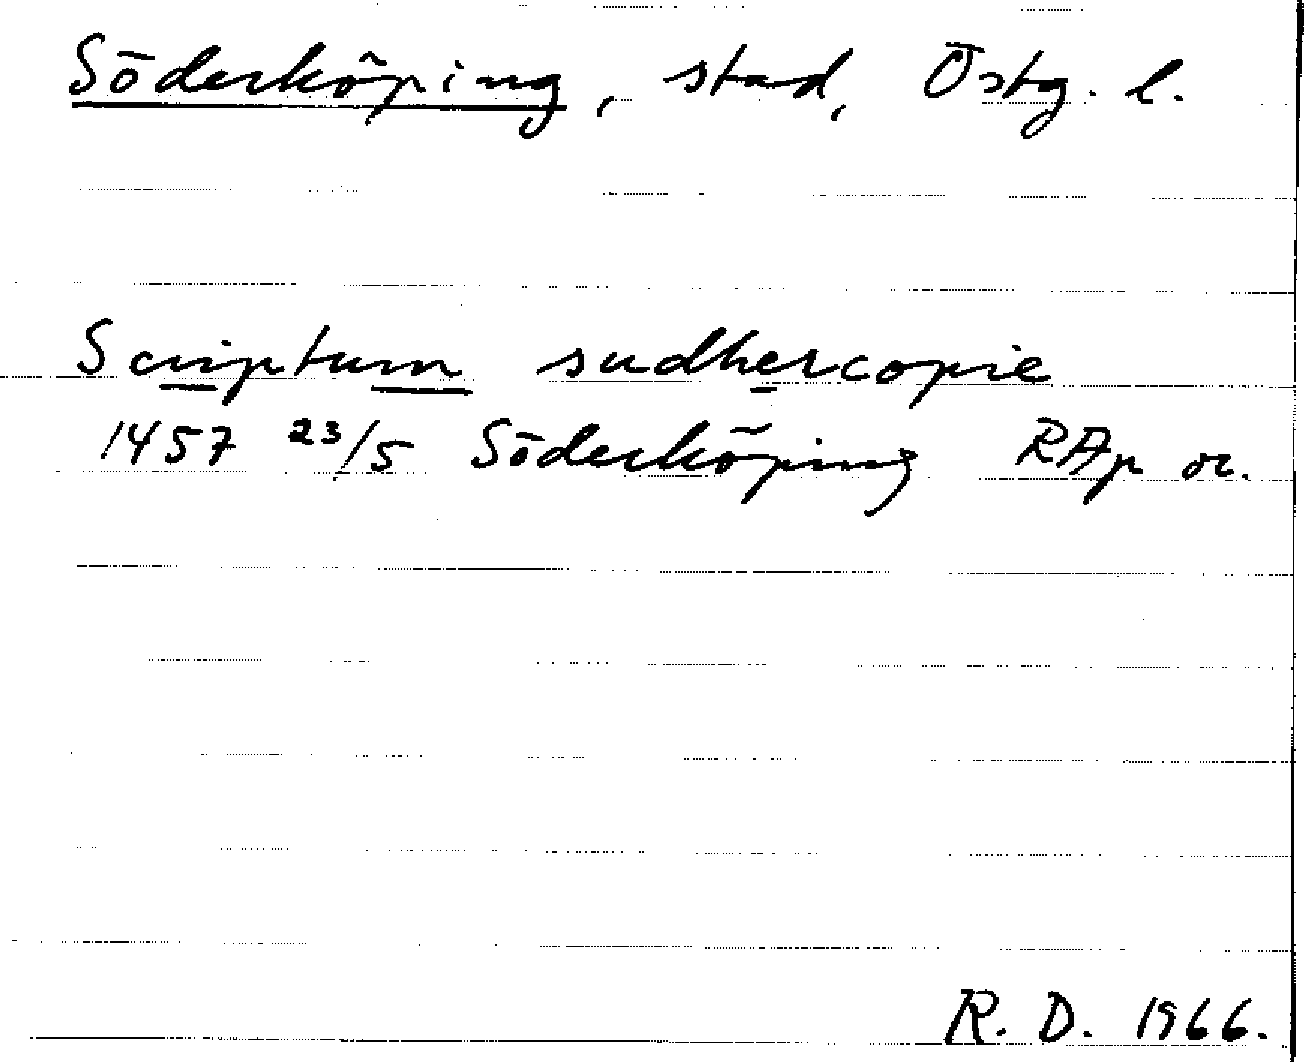 Söderköping, stad, Östg. l.
Scriptum sudhercopie
1457 23/5 Söderköping RAp or.
R. D. 1966.